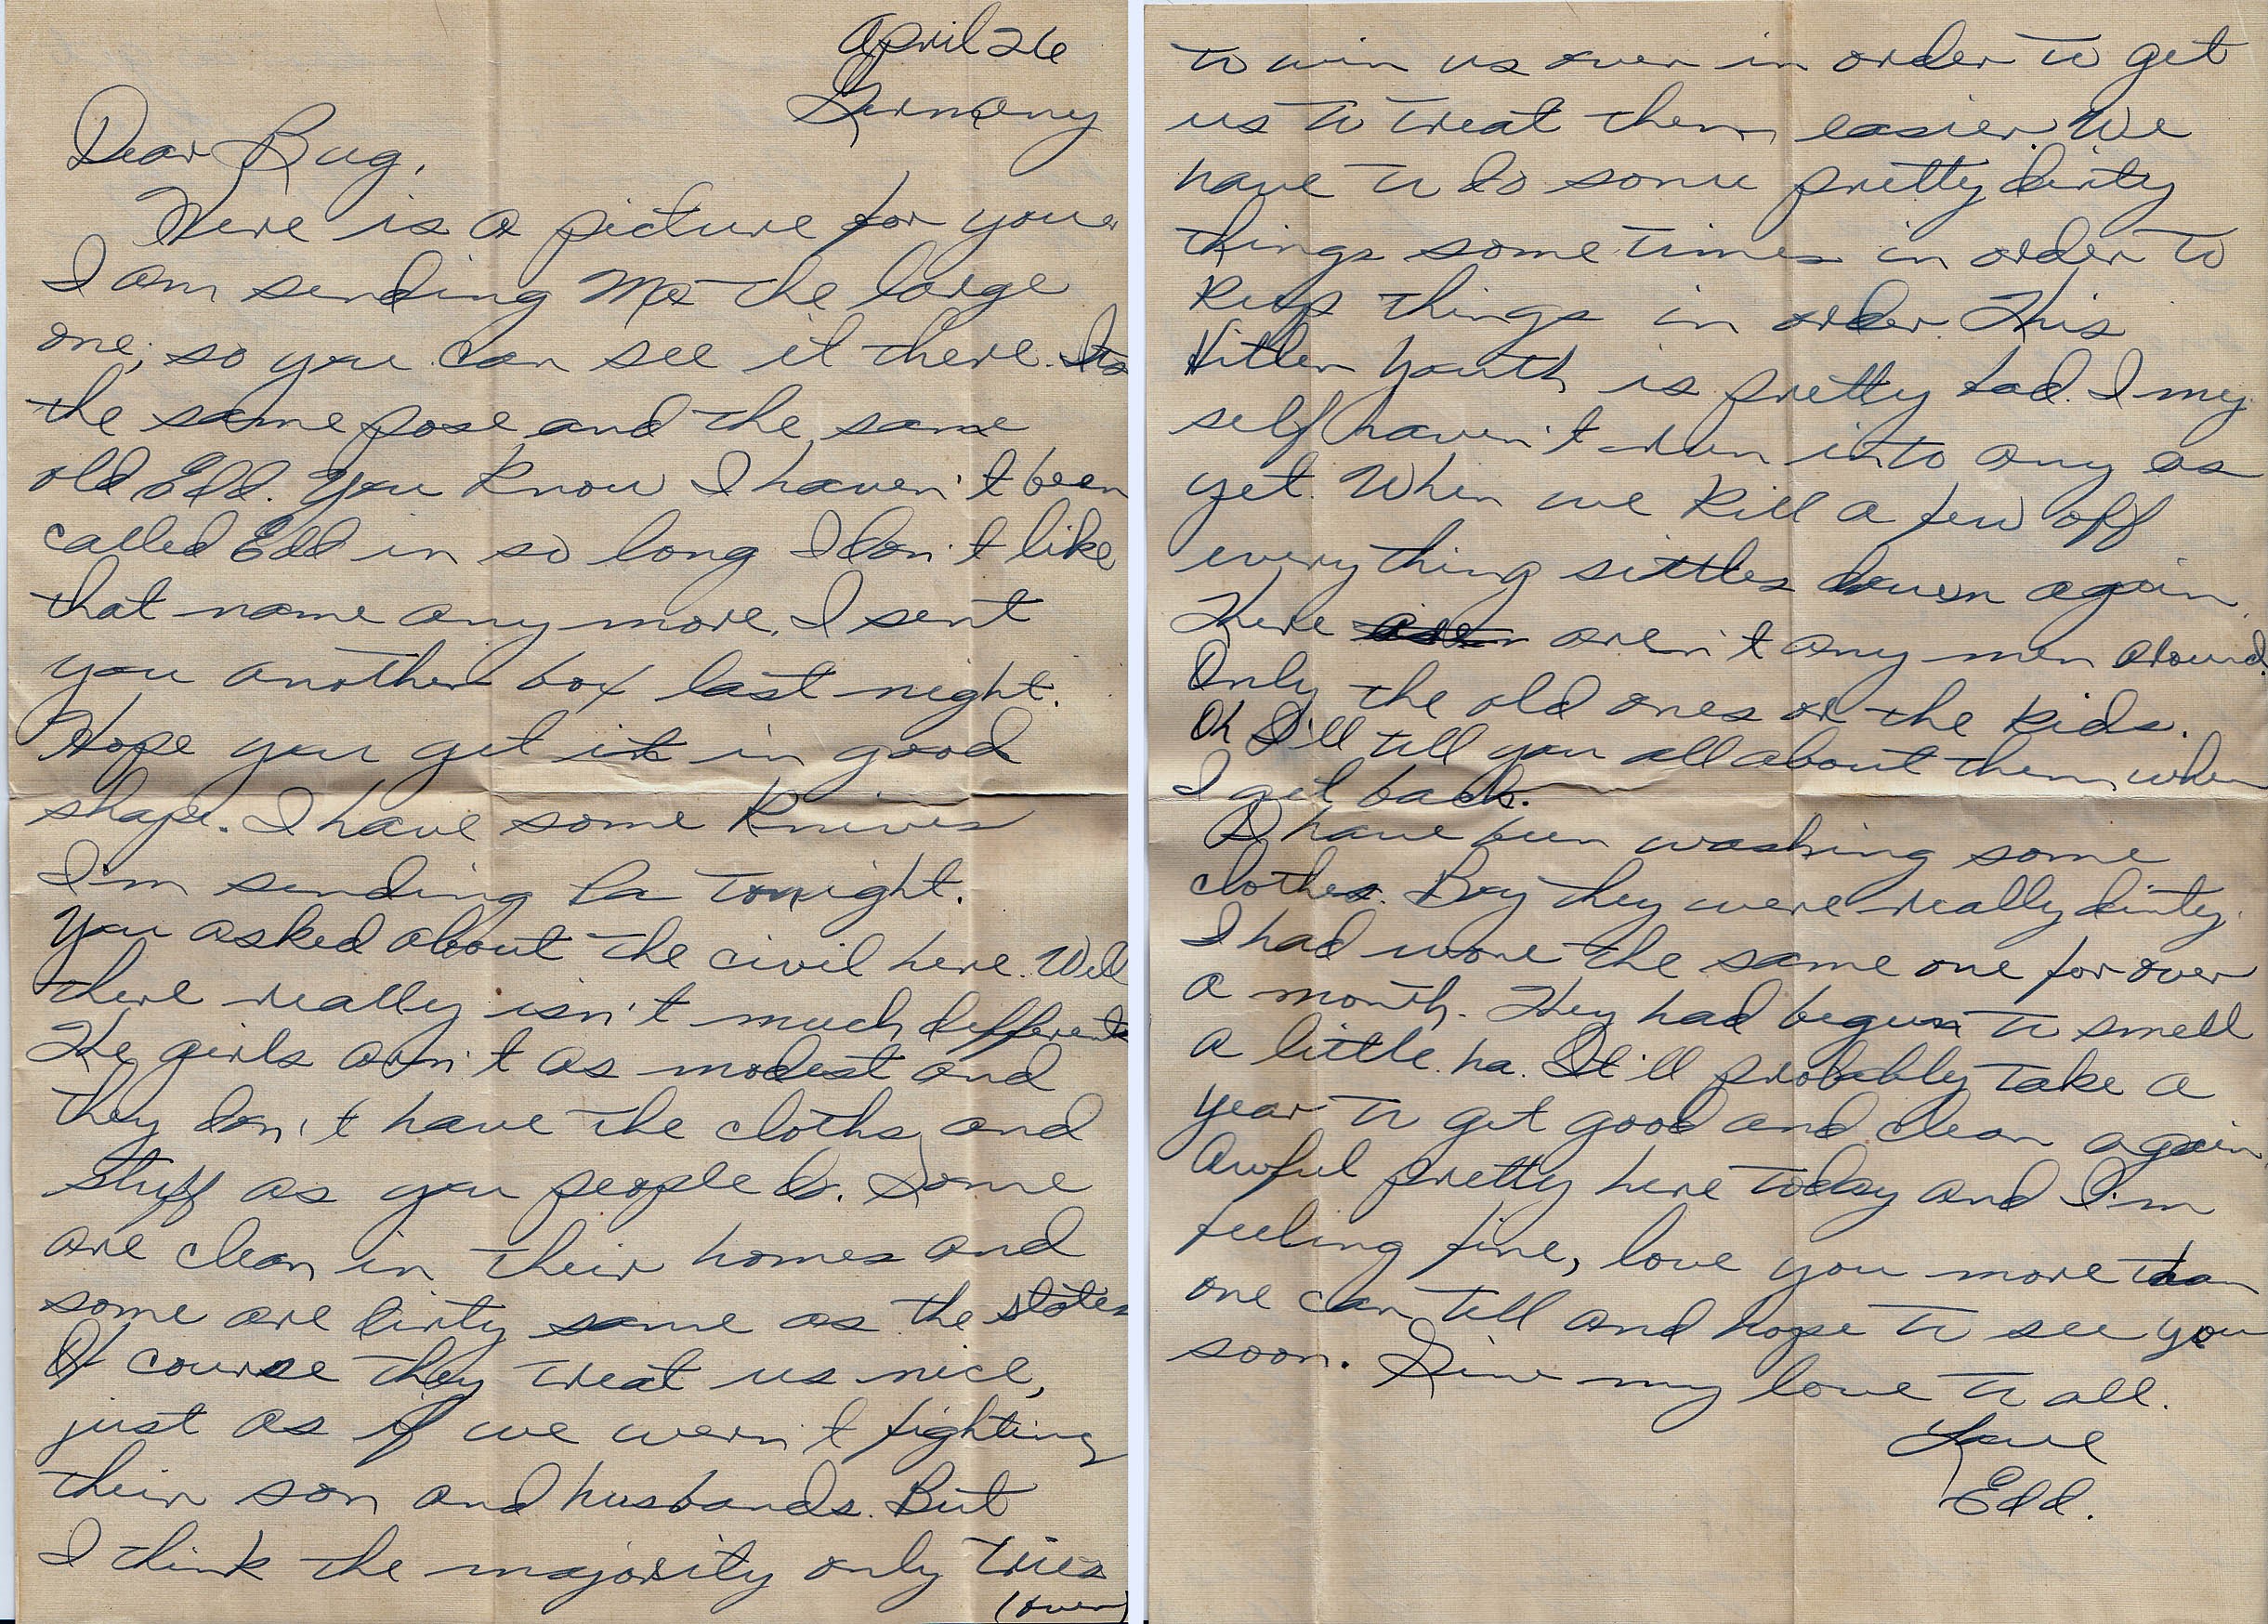 April 26
Germany
Dear Bug,
Here is a picture for you
I am sending Ma the large
one, so you can see it there. Its
the same pose and the same
old Edd. You know I haven't been
called Edd in so long I don't like
that name any more. I sent
you another box last night.
Hope you get it in good
shape. I have some knives
I'm sending Pa tonight.
You asked about the civil here. Well
there really isn't much different
The girls arn't as modest and
they don't have the cloths and
stuff as you people do. Some
are clean in their homes and
some are dirty same as the states
Of course they treat us nice,
just as if we wern't fighting
their son and husbands. But
I think the majority only tries
(over)
to win us over in order to get
us to treat them easier. We
have to do some pretty dirty
things some times in order to
keep things in order. This
Hitler Youth is pretty bad. I my
self haven't run into any as
yet. When we kill a few off
everything settles down again.
There aren't any men around.
Only the old ones or the kids.
Oh I'll tell you all about them when
I get back.
I have been washing some
clothes. Boy they were really dirty.
I had wore the same one for over
a month. They had begun to smell
a little. ha. It'll probably take a
year to get good and clean again
Awful pretty here today and I'm
feeling fine, love you more than
one can tell and hope to see you
soon. Give my love to all.
Love
Edd.